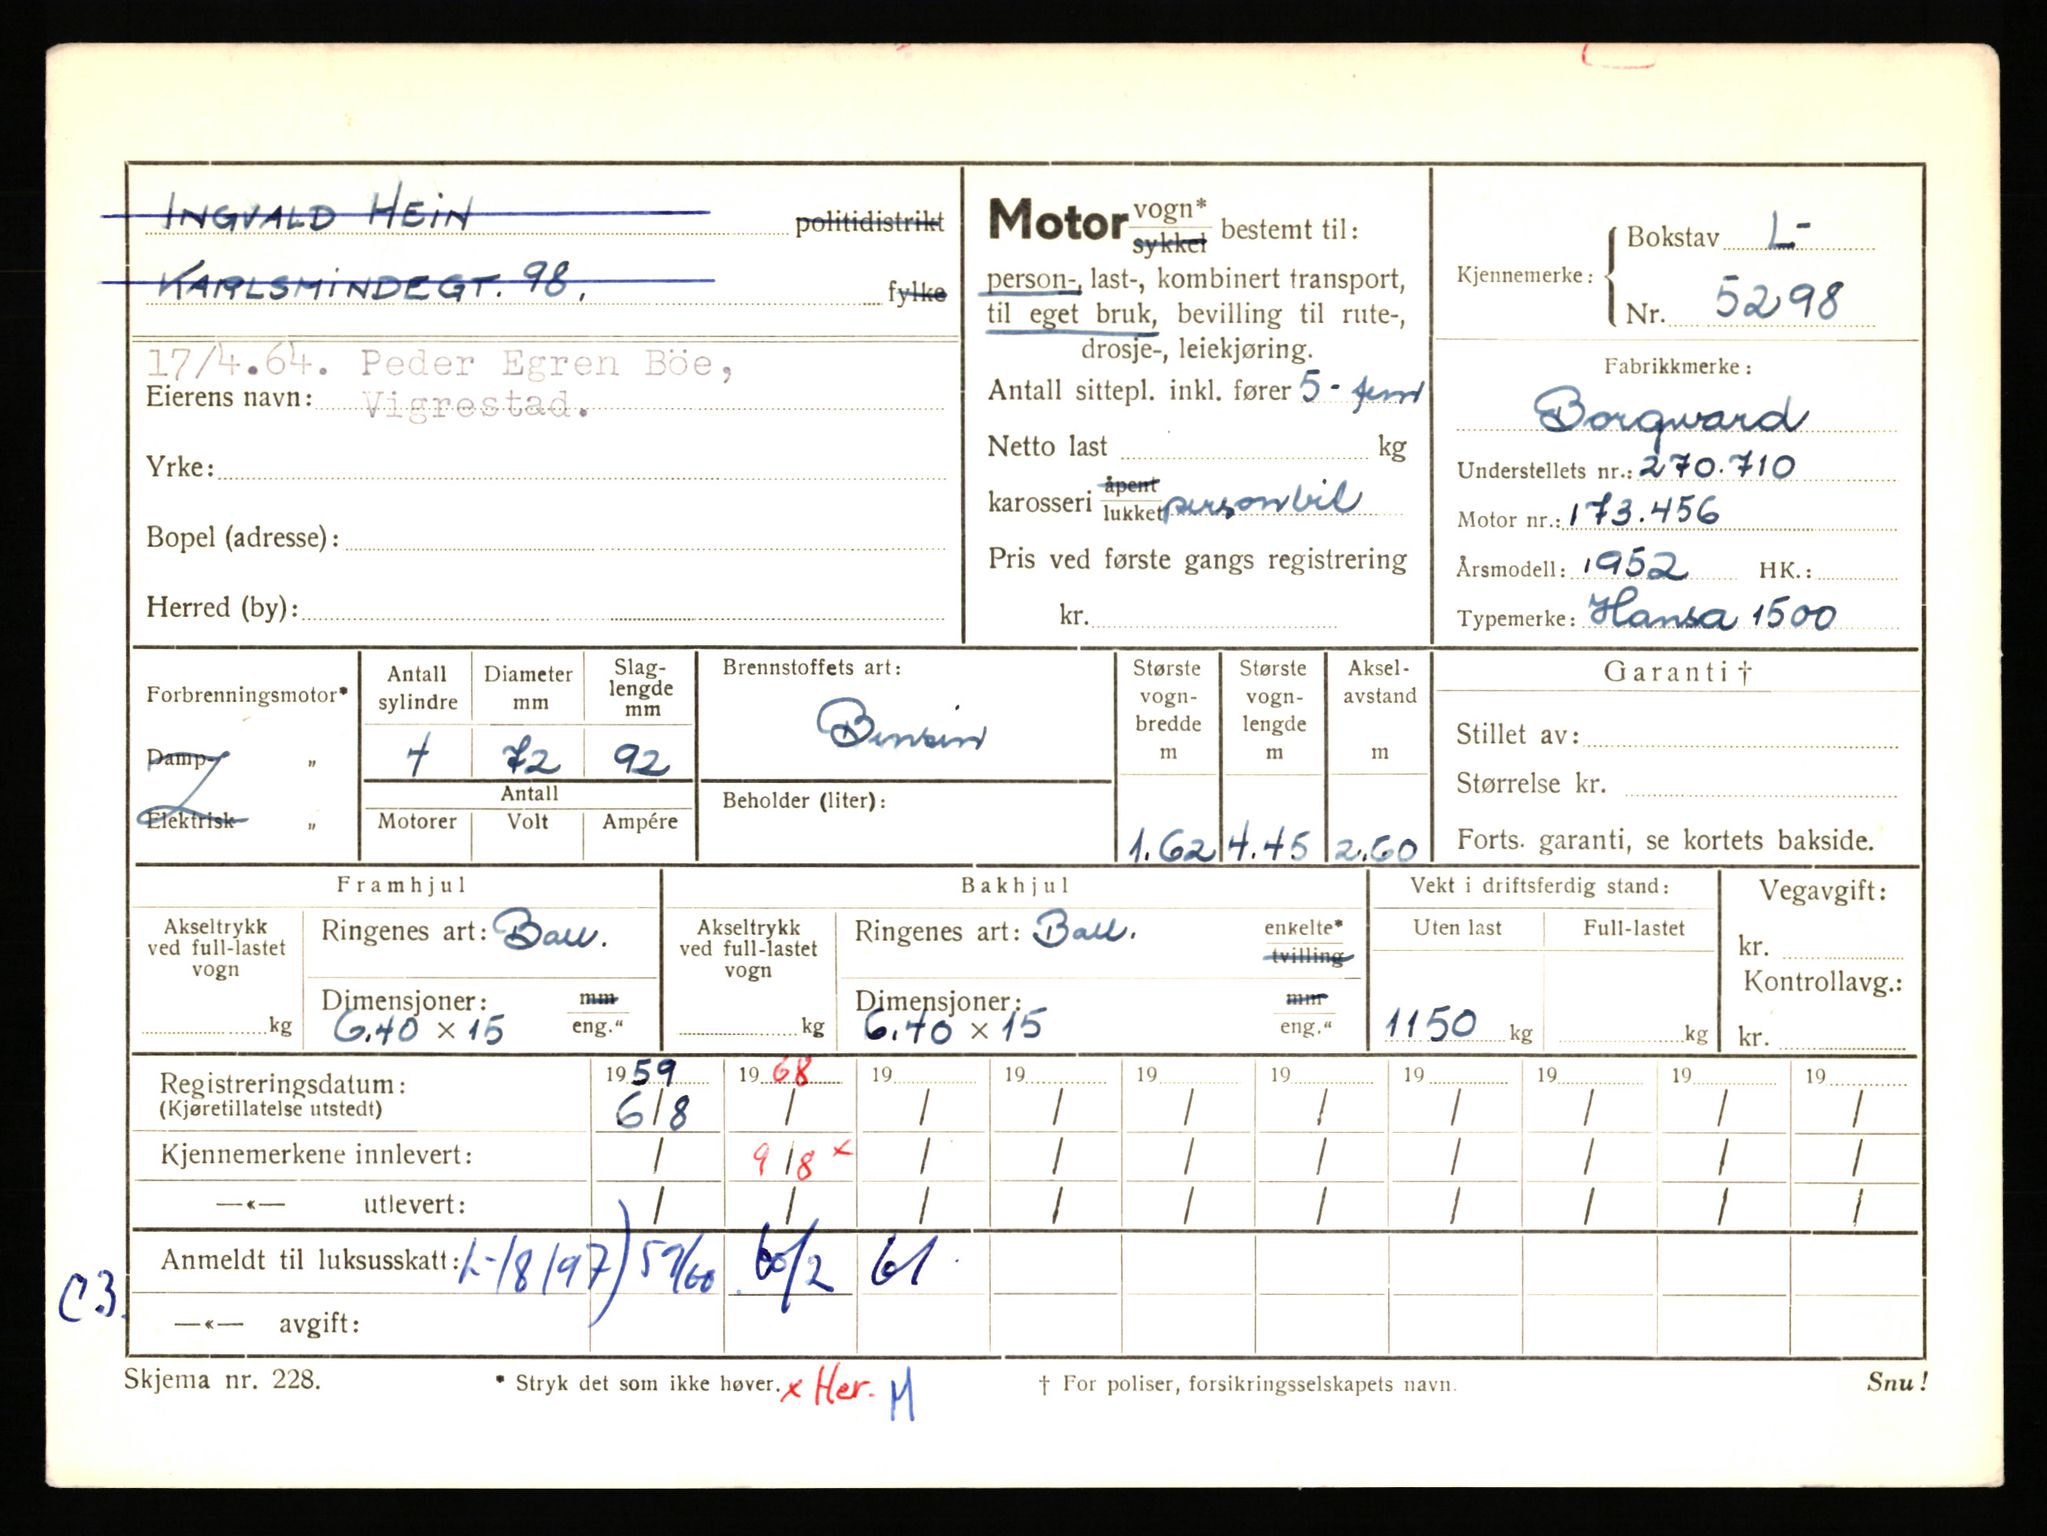 INGVALD HEIN politidistrikt
KARLSMINDEGT. 98. fylke
17/4.64. Peder Egren Böe,
Eierens navn: Vigrestad.
Yrke:
Bopel (adresse):
Herred (by):
Motor vogn* sykkel bestemt til:
person-, last-, kombinert transport,
til eget bruk, bevilling til rute-,
drosje-, leiekjøring.
Antall sittepl. inkl. fører 5 - fem
Netto last kg
karosseri åpent lukket personbil
Pris ved første gangs registrering
kr.
Kjennemerke:
Bokstav L-
Nr. 5298
Fabrikkmerke:
Borgward
Understellets nr.: 270.710
Motor nr.: 173.456
Årsmodell: 1952 HK.:
Typemerke: Hansa 1500
Forbrenningsmotor*
Damp- „
Elektrisk „
Antall sylindre
4
Diameter mm
72
Slag-lengde mm
92
Antall
Motorer Volt Ampére
Brennstoffets art:
Bensin
Beholder (liter):
Største vogn-bredde m
1.62
Største vogn-lengde m
4.45
Aksel-avstand m
2.60
Garanti †
Stillet av:
Størrelse kr.
Forts. garanti, se kortets bakside.
Framhjul
Akseltrykk ved full-lastet vogn
kg
Ringenes art: Ball.
Dimensjoner: mm
6.40 × 15 eng."
Bakhjul
Akseltrykk ved full-lastet vogn
kg
Ringenes art: Ball. enkelte* tvilling
Dimensjoner: mm
6.40 × 15 eng."
Vekt i driftsferdig stand:
Uten last Full-lastet
1150 kg kg
Vegavgift:
kr.
Kontrollavg.:
kr.
Registreringsdatum: 1959 1968 19 19 19 19 19 19 19 19
(Kjøretillatelse utstedt) 6/8 / / / / / / / / /
Kjennemerkene innlevert: / 9/8 x / / / / / / / /
—«— utlevert: / / / / / / / / / /
Anmeldt til luksusskatt: L-18197) 59/60 60/2 61
C3.
—«— avgift:
Skjema nr. 228.
* Stryk det som ikke høver. x Her. M
† For poliser, forsikringsselskapets navn.
Snu!